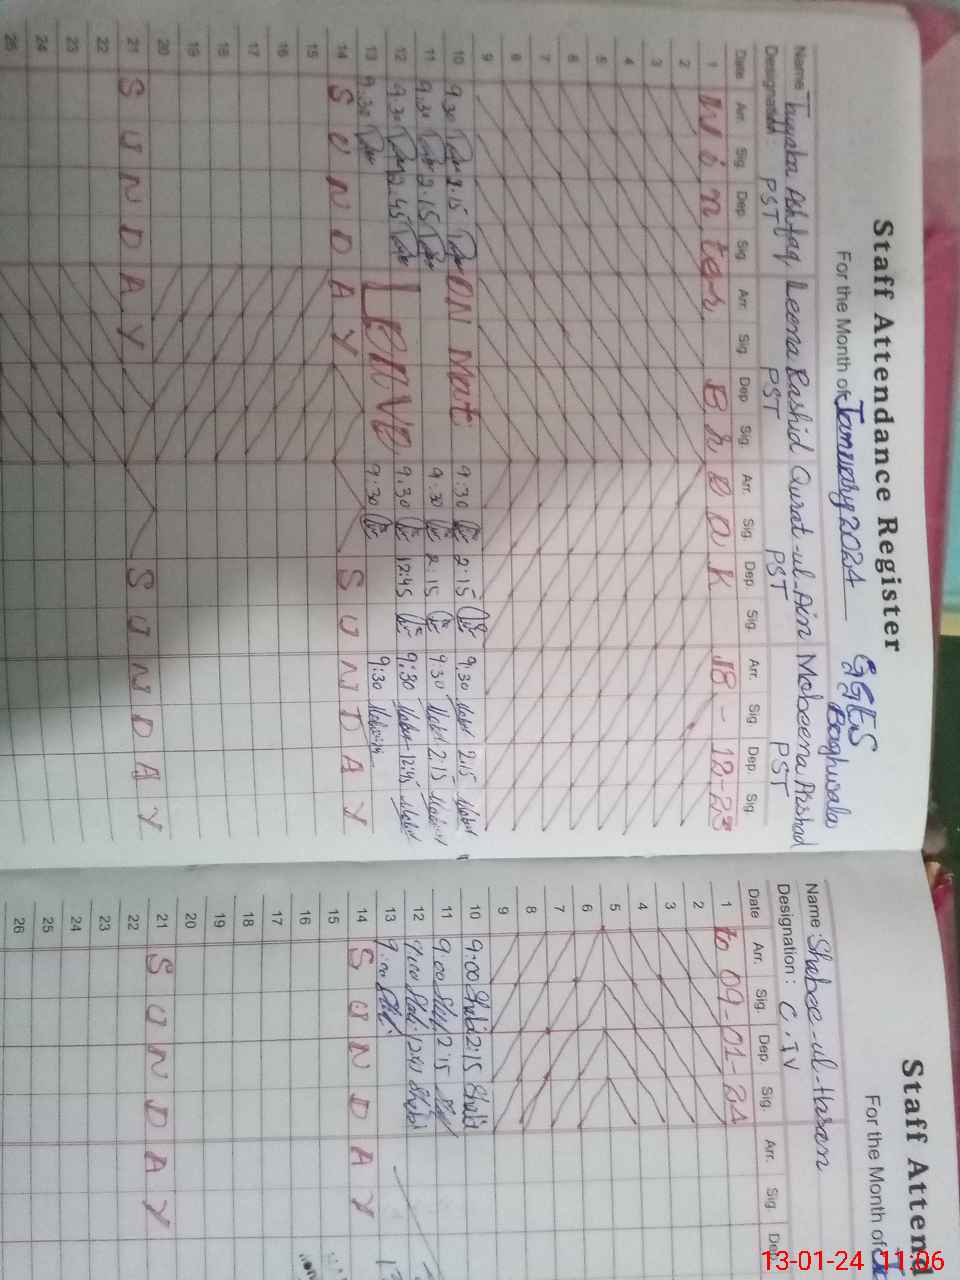 Staff Attendance Register
For the Month of January 2024
GGES
Boaghwala
Name Ashfaq Leena Rashid Qurat-ul-Ain Mobeena Arshad
Designation: PST PST PST PST
Date Arr. Sig. Dep. Sig. Arr. Sig. Dep. Sig. Arr. Sig. Dep. Sig. Arr. Sig. Dep. Sig.
1 Winter Break 18-12-23
2
3
4
5
6
7
8
9
10 9.30 2.15 ON Mat 9:30 2:15 9.30 2.15
11 9.30 2.15 9:30 2:15 9:30 2.15
12 9.30 12.45 9.30 12:45 9:30 12:45
13 9.30 Leave 9:30 9:30
14 SUNDAY SUNDAY
15
16
17
18
19
20
21 SUNDAY SUNDAY
22
23
24
25
Staff Attend
For the Month of
Name: Shabee-ul-Hasan
Designation: C.IV
Date Arr. Sig. Dep. Sig. Arr. Sig. Dep.
1 to 09-01-24
2
3
4
5
6
7
8
9
10 9:00 2:15
11 9:00 2:15
12 9:00
13 9:00
14 SUNDAY
15
16
17
18
19
20
21 SUNDAY
22
23
24
25
26
13-01-24 11:06